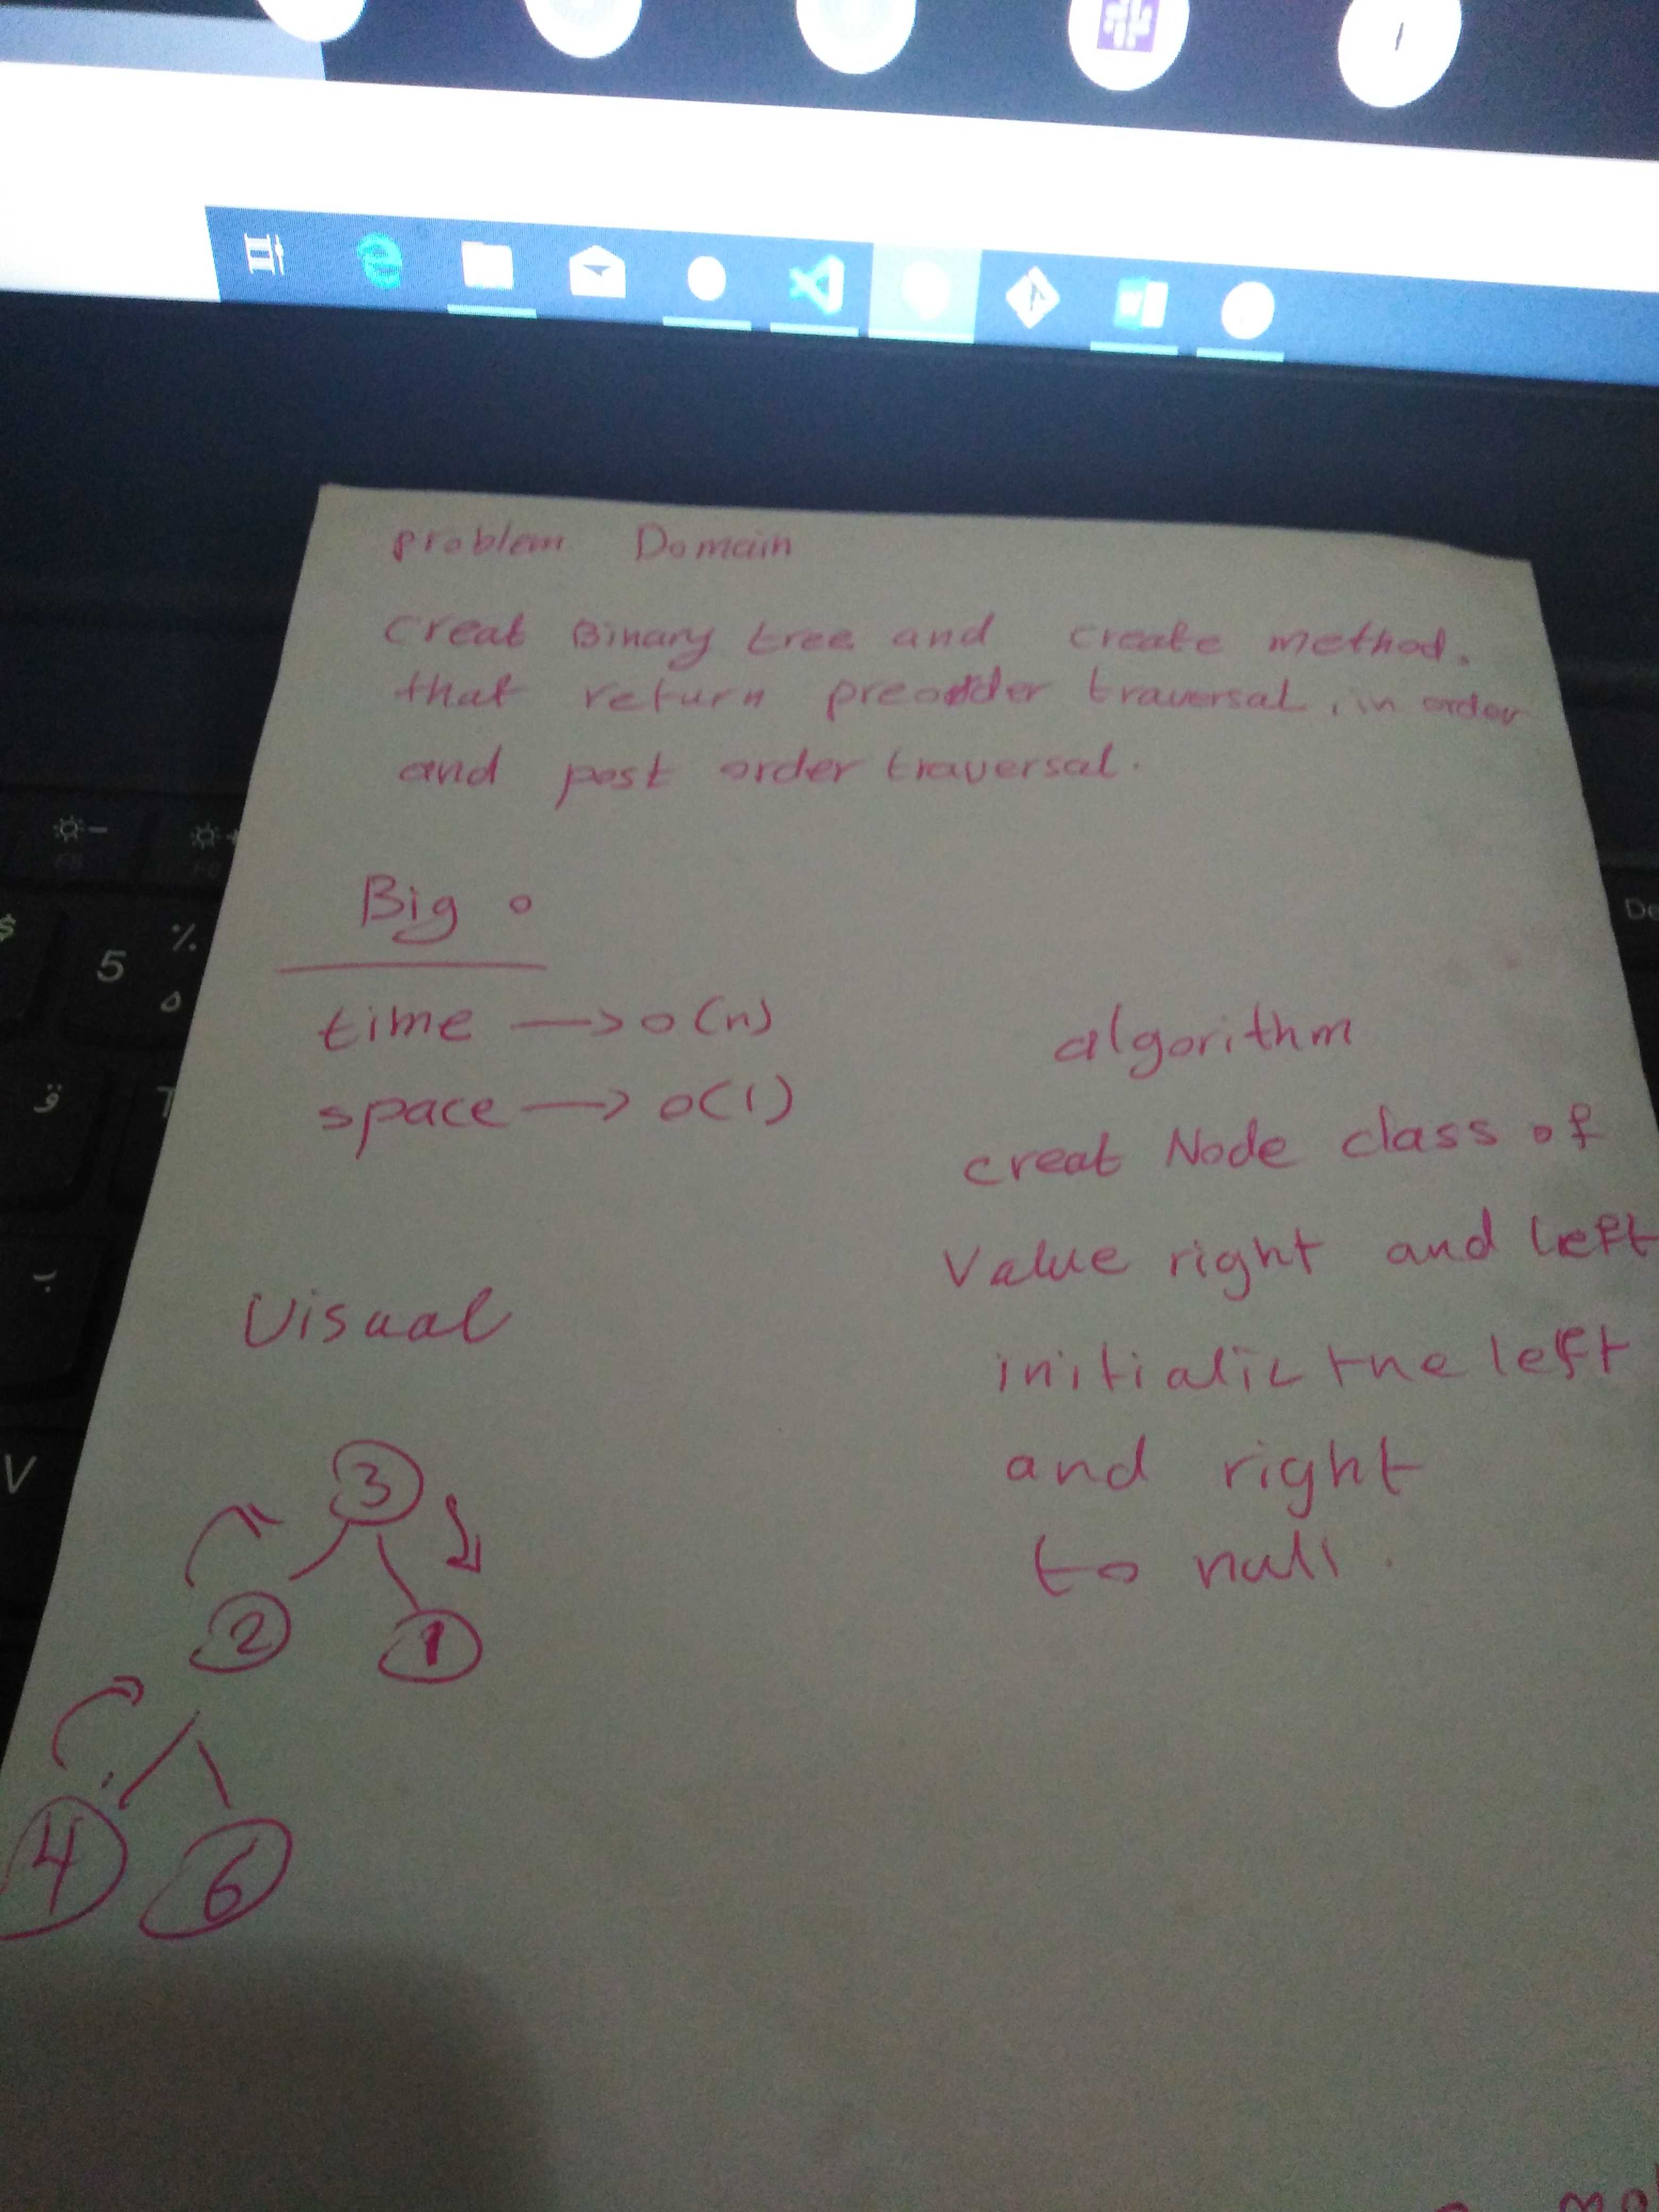 problem Domain
creat Binary tree and create method.
that return preorder traversal, in order
and post order traversal.
Big o
time → o(n)
space → o(1)
algorithm
creat Node class of
Value right and left
initialic the left
and right
to null.
Visual
3
2 1
4 6
$
5 %
٥
ق
T
V
De
W